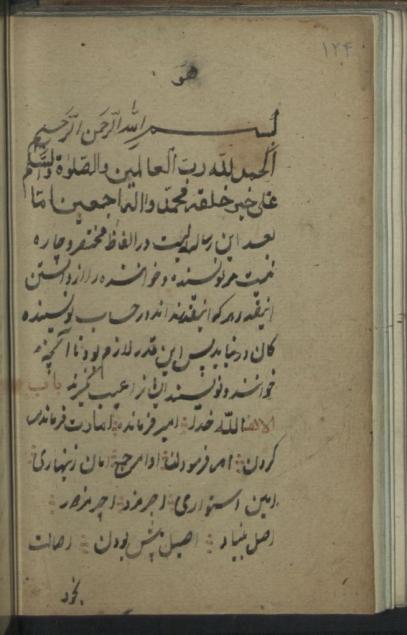 ۱۲۴
هو
بسم الله الرحمن الرحیم
الحمد لله رب العالمین والصلوة والسلم
علی خیر خلقه محمد واله اجمعین اما
بعد این رساله ایست در الفاظ مختصر و چاره
نیست مر نویسنده و خواننده را از دانستن
اینقدر هر که اینقدر نداند در حساب نویسنده
کان در نیاید پس این قدر لازم بود تا آنچه
خواننده و نویسنده از عیب باب
الالف الله خدا امیر فرمانده امارت فرماندهی
کردن امر فرمودن اوامر جمع امان زینهاری
امین استواری اجر مزد اجیر مزدور
اصل بنیاد اصیل بودن اصالت